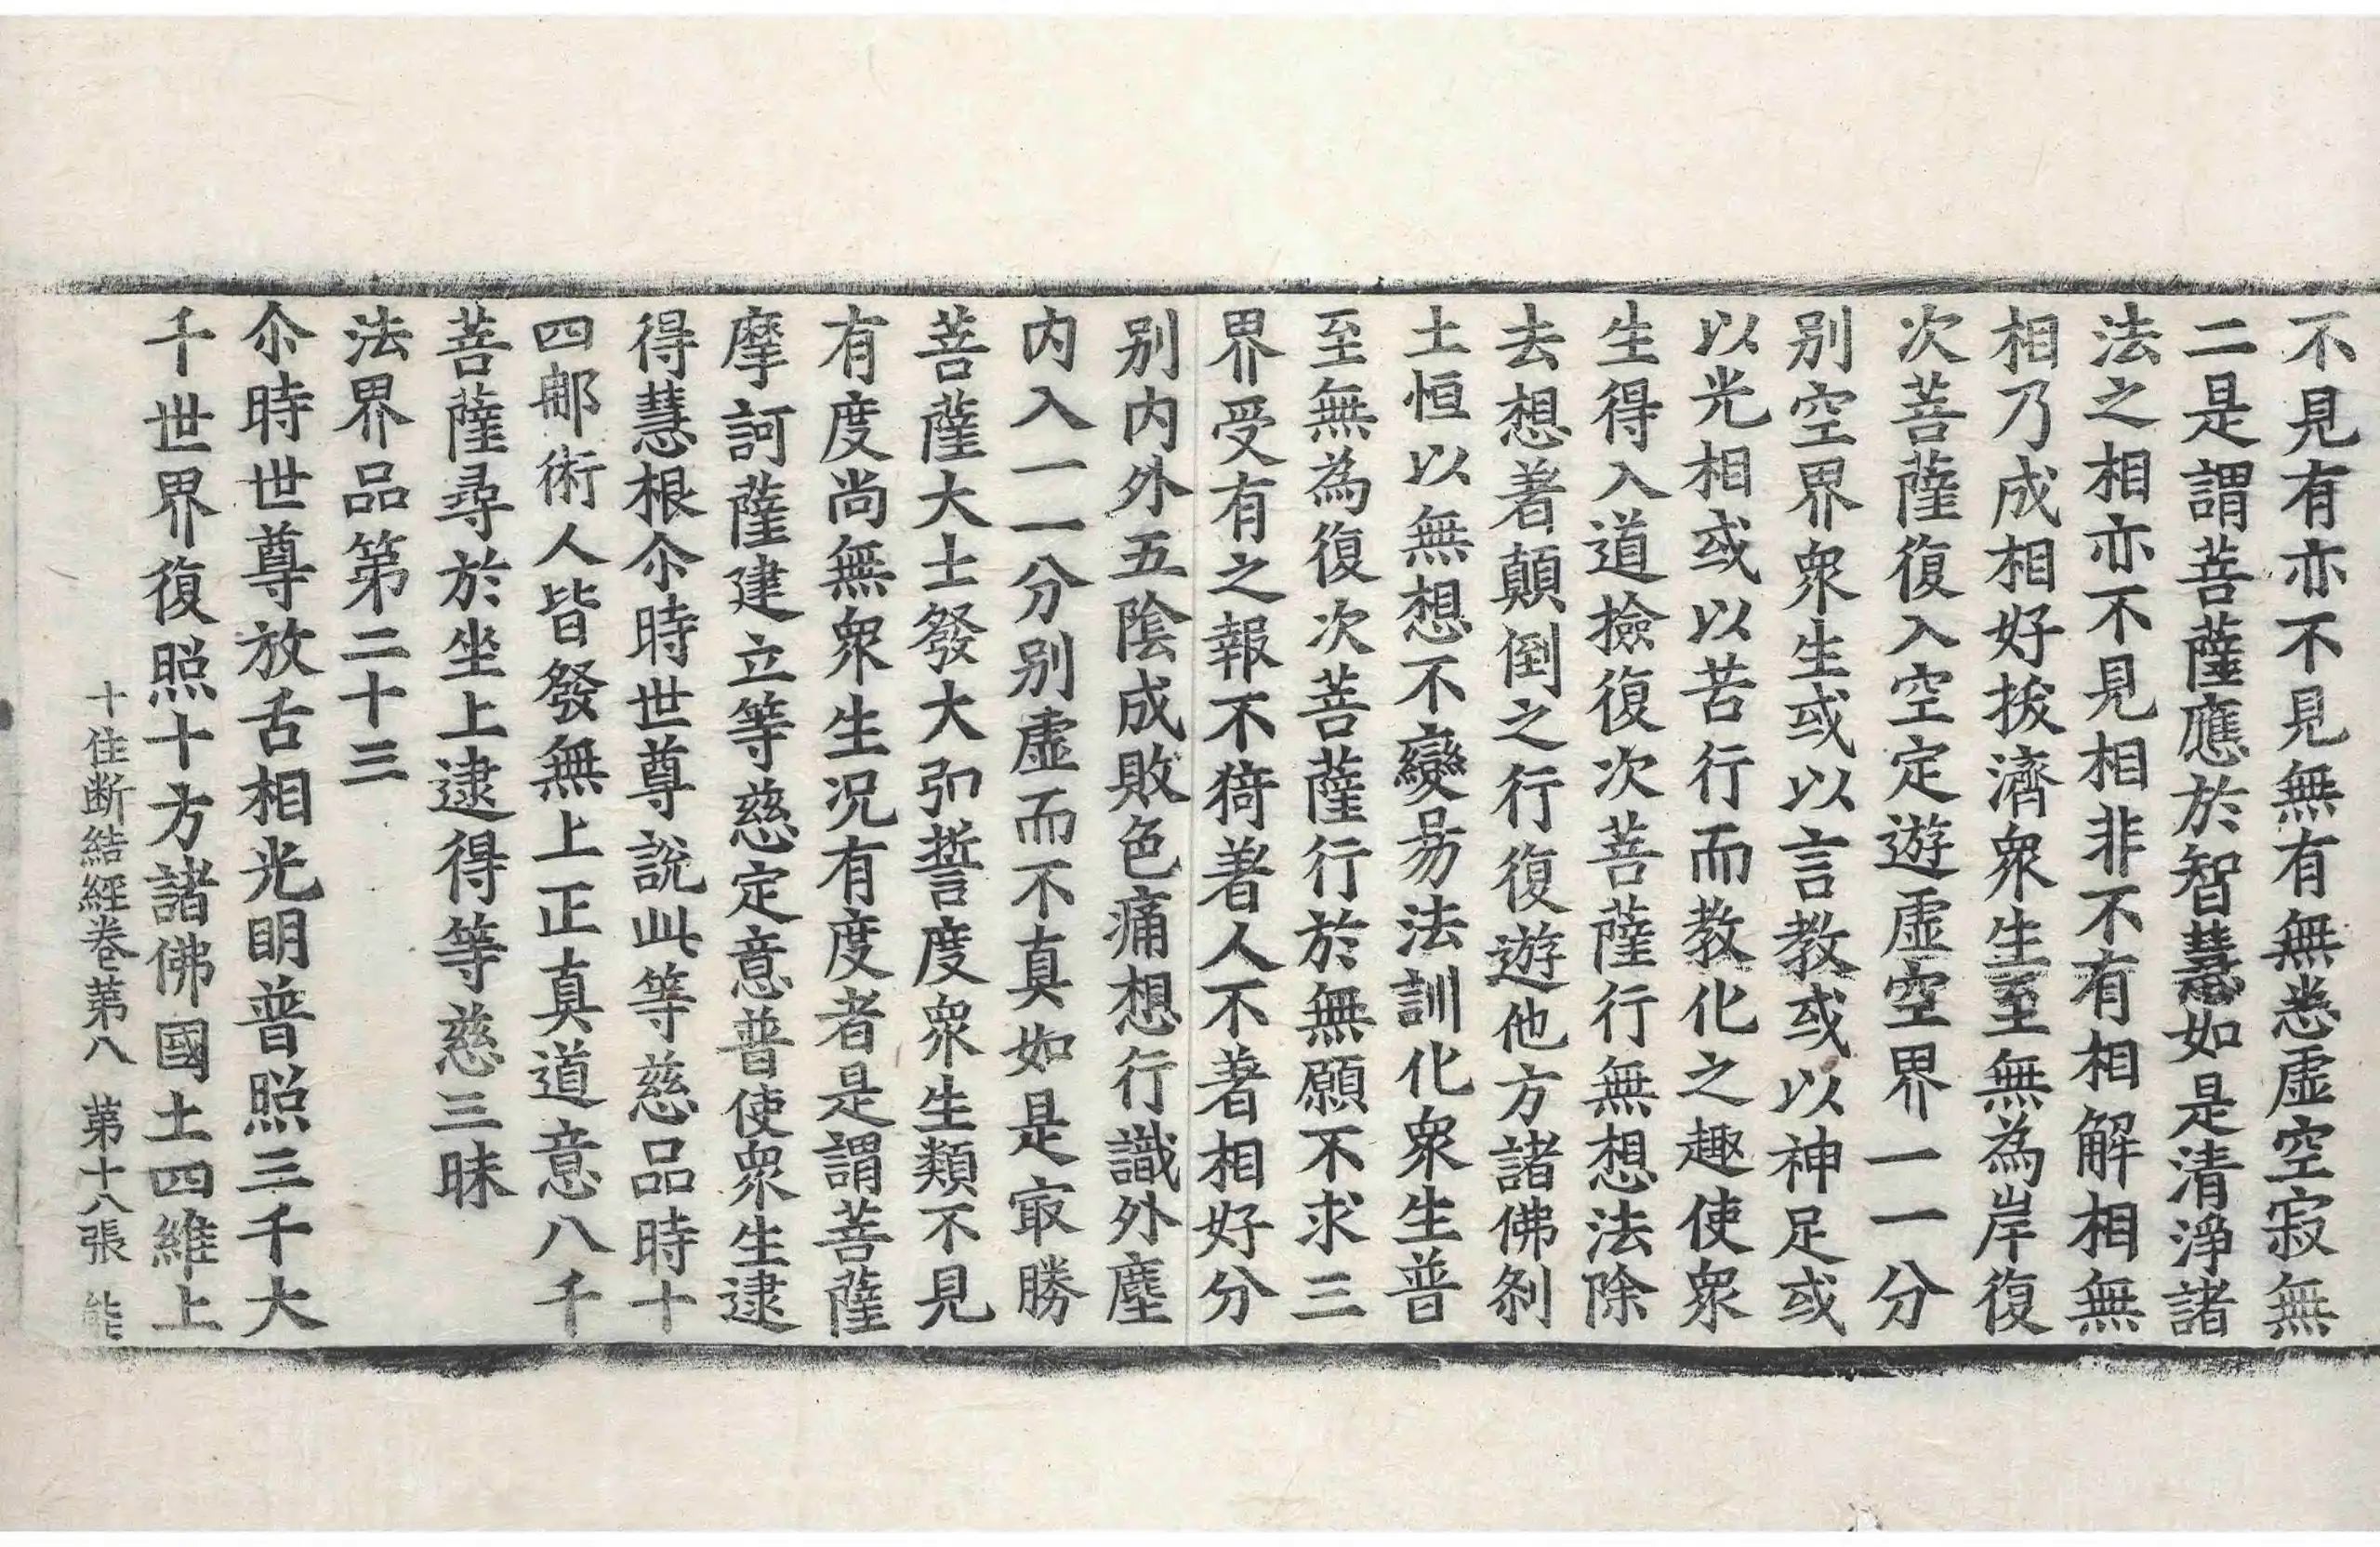 不見有亦不見無有無悉虛空寂無
二是謂菩薩應於智慧如是清淨諸
法之相亦不見相非不有相解相無
相乃成相好拔濟衆生至無為岸復
次菩薩復入空定遊虛空界一一分
别空界衆生或以言教或以神足或
以光相或以苦行而教化之趣使衆
生得入道撿復次菩薩行無想法除
去想著顛倒之行復遊他方諸佛刹
土恒以無想不變易法訓化衆生普
至無為復次菩薩行於無願不求三
界受有之報不猗著人不著相好分
别内外五陰成敗色痛想行識外塵
内入一一分别虛而不真如是冣勝
菩薩大士發大弘誓度衆生類不見
有度尚無衆生况有度者是謂菩薩
摩訶薩建立等慈定意普使衆生逮
得慧根尒時世尊說此等慈品時十
四郍術人皆發無上正真道意八千
菩薩尋於坐上逮得等慈三昧
法界品第二十三
尒時世尊放舌相光明普照三千大
千世界復照十方諸佛國土四維上
十住断結經卷第八 第十八張 能